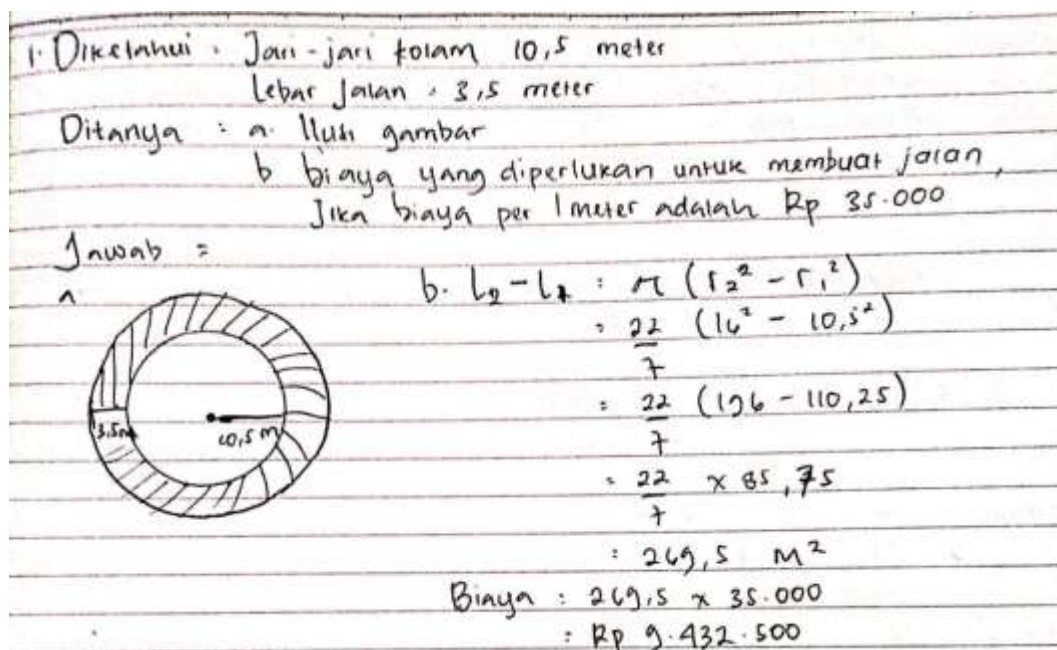 1. Diketahui : Jari-jari kolam 10,5 meter
Lebar Jalan : 3,5 meter
Ditanya : a. Ilustr gambar
b biaya yang diperlukan untuk membuat jalan,
Jika biaya per 1 meter adalah Rp 35.000
Jawab =
a
3,5m
10,5 m
b. L₂ - L₁ : π (r₂² - r₁²)
= 22/7 (14² - 10,5²)
= 22/7 (196 - 110,25)
= 22/7 x 85,75
: 269,5 m²
Biaya : 269,5 x 35.000
: Rp 9.432.500